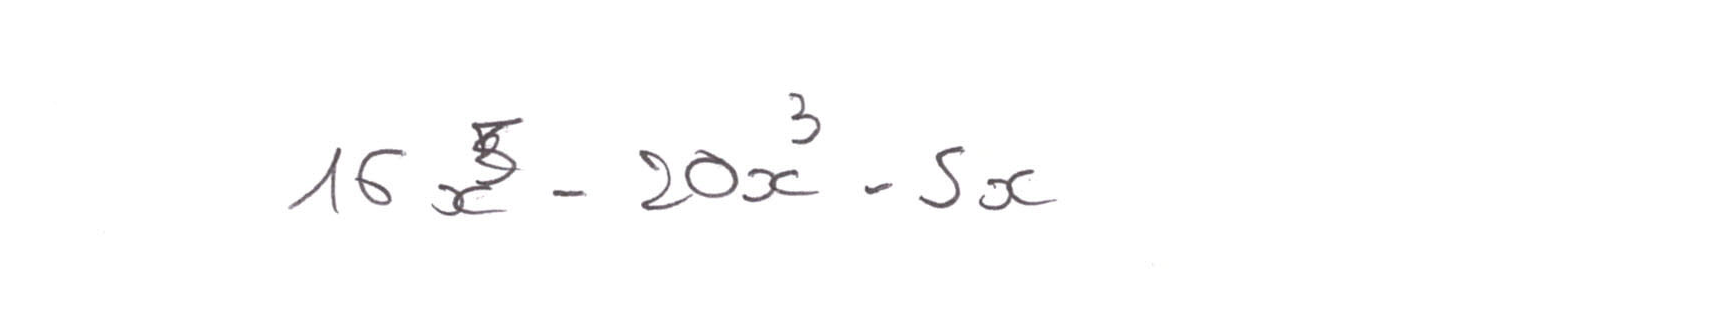 16x⁵ - 20x³ - 5x